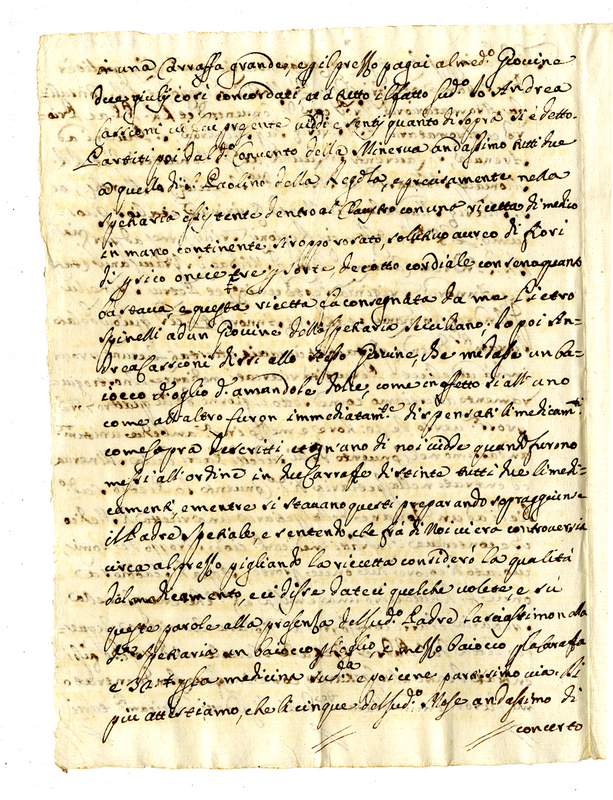 in una Carraffa grande, e p il prezzo pagai al med.o Giovine
due giulij così concordati, et a tutto il fatto sud.o Io Andrea
Casconi fui presente viddi, e sentij quanto di sopra si è detto.
Partiti poi dal d.o Convento della Minerva andassimo tutti due
a quello di S. Paolino della Regola, e precisamente nella
spetiaria esistente dentro al Claustro con una ricetta di medico
in mano continente siroppo rosato solutivo aureo di fiori
di persico oncie tre, p sorte decotto cordiale con sena quanto
bastava, e questa ricetta fu consegnata da me Pietro
Spinelli ad un Giovine della spetiaria siciliano; Io poi An=
drea Casconi dissi allo stesso Giovine, che mi dasse un ba=
iocco d'oglio d'amandole dolce, come in effetto sì all'uno
come all'altro furon immediatam.te dispensati li medicam.ti
come sopra descritti, et ogn'uno di noi vidde quando furono
messi all'ordine in due Carraffe distinte tutti due li medi=
camenti, e mentre si stavano questi preparando sopraggiunse
il Padre spetiale, e sentendo che frà di Noi vi era controversia
circa al prezzo pigliando la ricetta considerò la qualità
del medicamento, e ci disse dateci quelche volete, e sù
queste parole alla presenza del sud.o Padre lasciassimo alla
d.a spetiaria un baiocco p l'oglio, e mezzo baiocco p la Caraffa
e p la medicina sud.a e poi ce ne partissimo via. Di
più attestiamo, che li cinque del sud.o Mese andassimo di
concerto